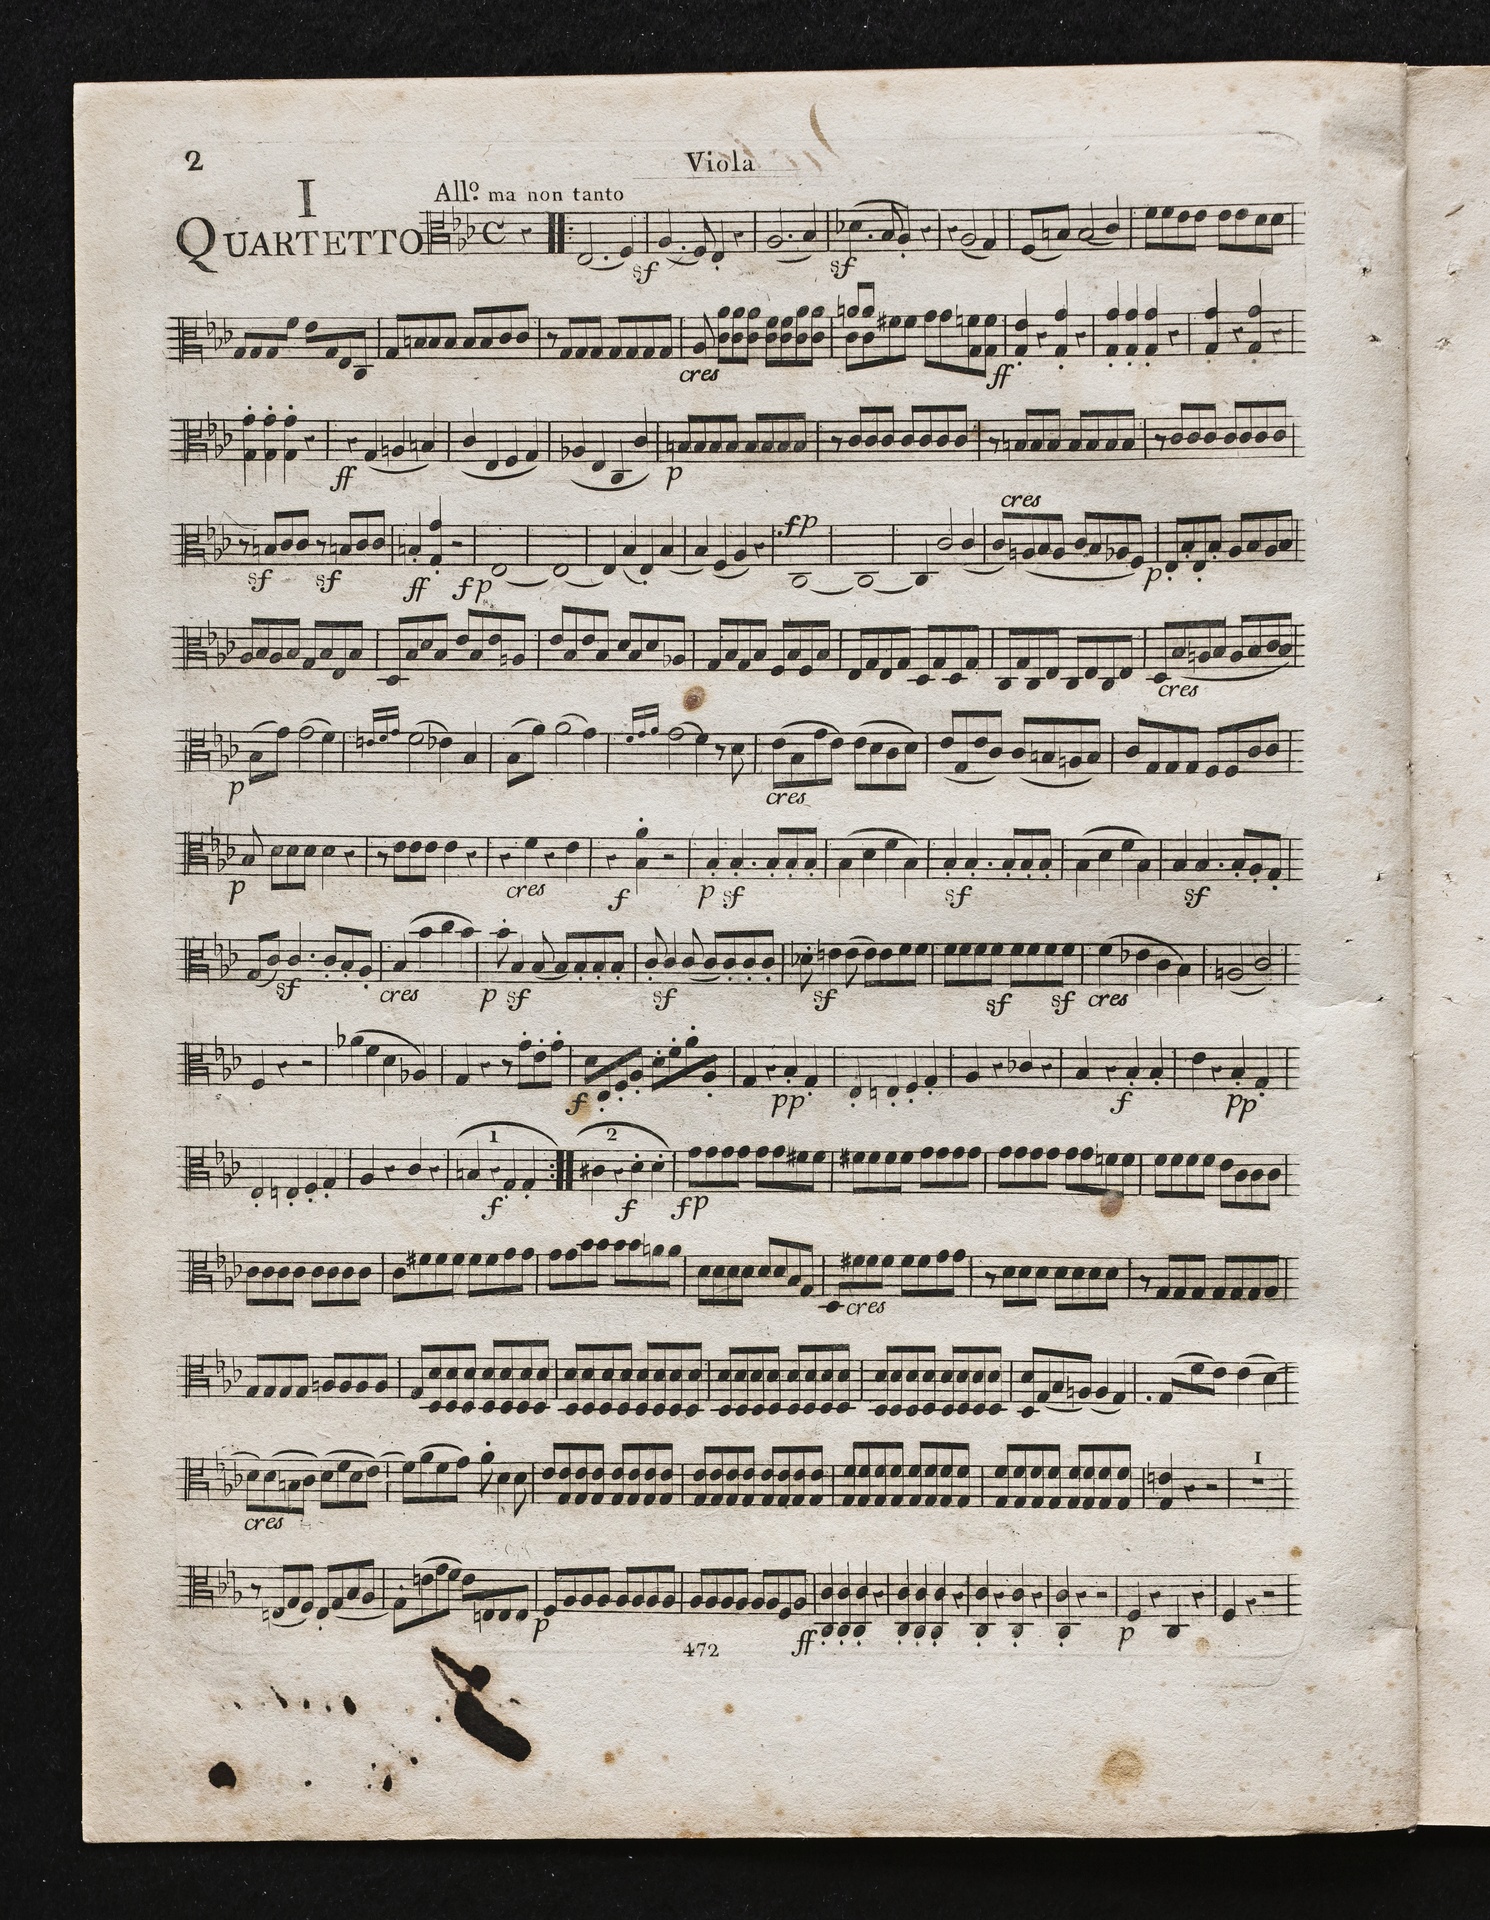 2
Viola
I
QUARTETTO
All.º ma non tanto
C
sf sf
cres ff
ff p
cres
fp
sf sf ff fp p
cres
p cres
p cres f p sf sf sf
sf cres p sf sf sf sf sf cres
f pp f pp
1 2
f f fp
cres
I
cres
p ff p
472